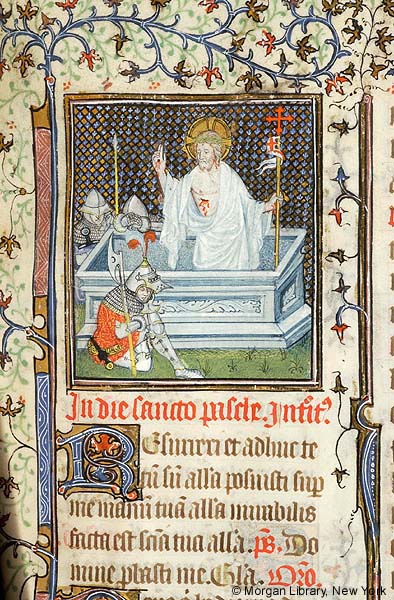 In die sancto pasche. Introit᾽
Resurrexi et adhuc te
cū sū alla posuisti sup
me manū tuā alla mirabilis
facta est sciā tua alla. ps. Do
mine pbasti me. Gla. Oro.
© Morgan Library, New York